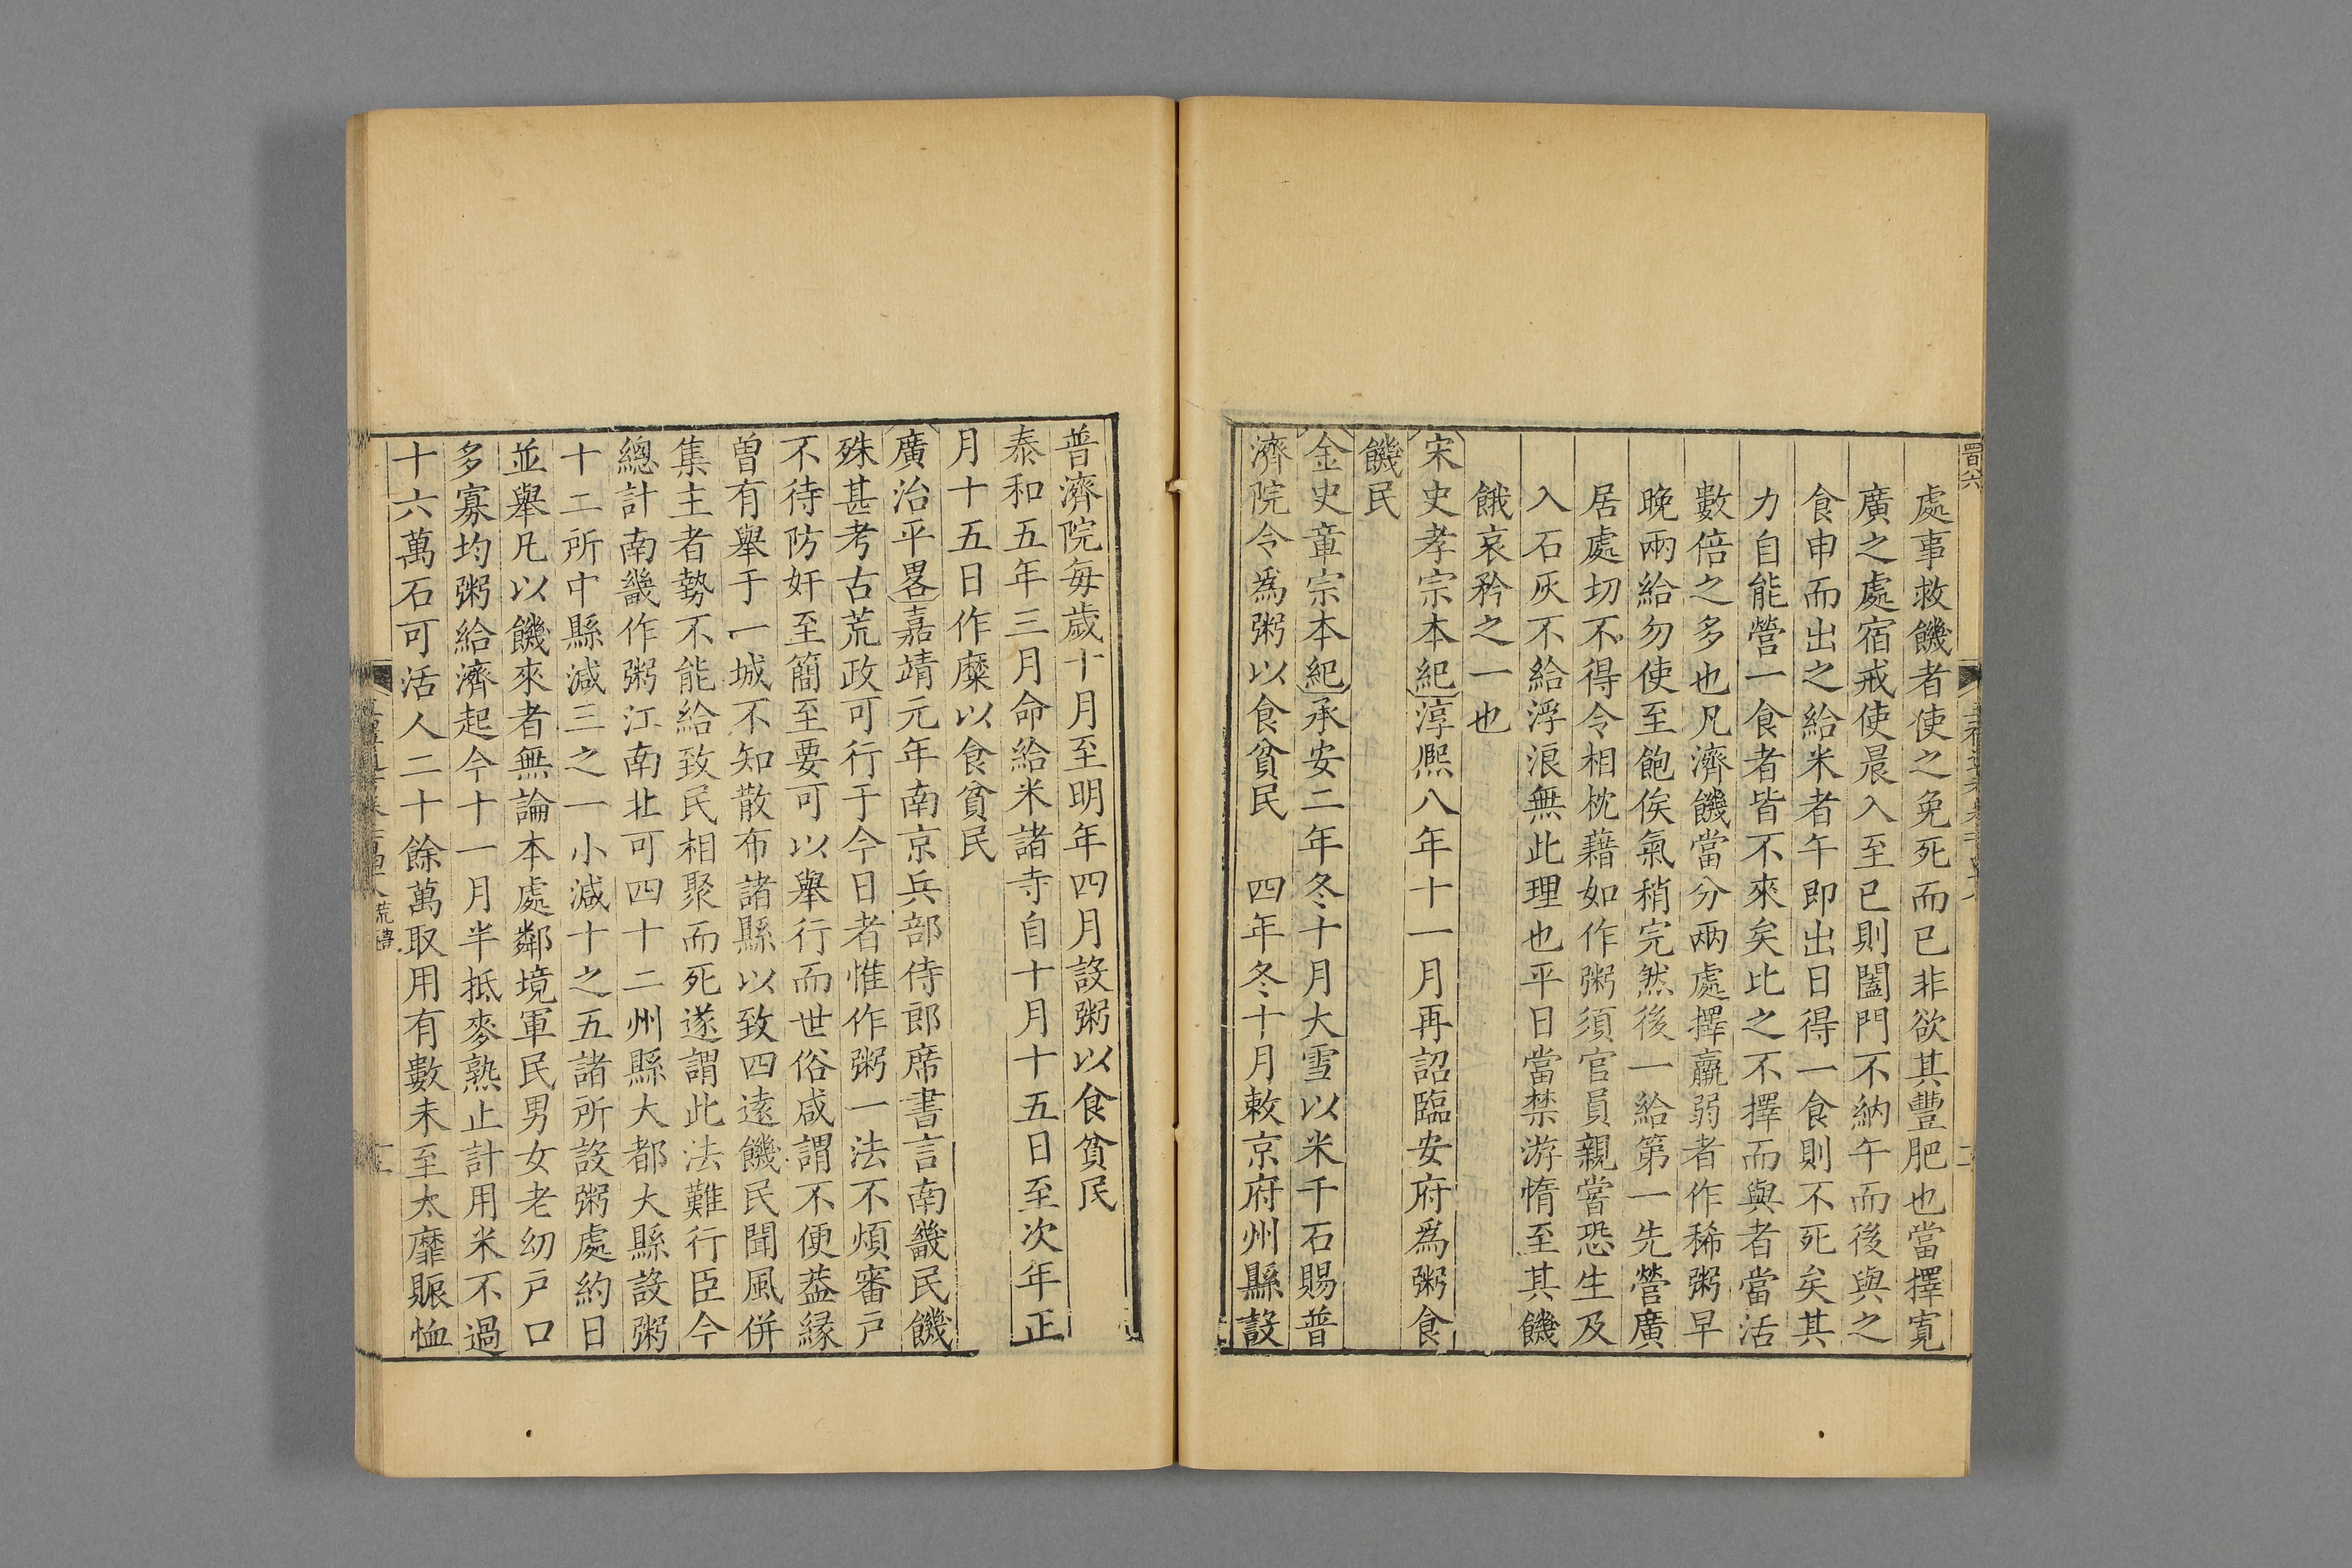 處事救饑者使之免死而已非欲其豐肥也當擇寬
廣之處宿戒使晨入至巳則闔門不納午而後與之
食申而出之給米者午即出日得一食則不死矣其
力自能營一食者皆不來矣比之不擇而與者當活
數倍之多也凡濟饑當分兩處擇羸弱者作稀粥早
晚兩給勿使至飽俟氣稍完然後一給第一先營廣
居處切不得令相枕藉如作粥須官員親嘗恐生及
入石灰不給浮浪無此理也平日當禁游惰至其饑
餓哀矜之一也
宋史孝宗本紀淳熈八年十一月再詔臨安府爲粥食
饑民
金史章宗本紀承安二年冬十月大雪以米千石賜普
濟院令爲粥以食貧民　四年冬十月敕京府州縣設
普濟院每歲十月至明年四月設粥以食貧民
泰和五年三月命給米諸寺自十月十五日至次年正
月十五日作糜以食貧民
廣治平畧嘉靖元年南京兵部侍郎席書言南畿民饑
殊甚考古荒政可行于今日者惟作粥一法不煩審戸
不待防奸至簡至要可以舉行而世俗咸謂不便葢緣
曽有舉于一城不知散布諸縣以致四遠饑民聞風併
集主者勢不能給致民相聚而死遂謂此法難行臣今
總計南畿作粥江南北可四十二州縣大都大縣設粥
十二所中縣減三之一小減十之五諸所設粥處約日
並舉凡以饑來者無論本處鄰境軍民男女老幼戸口
多寡均粥給濟起今十一月半抵麥熟止計用米不過
十六萬石可活人二十餘萬取用有數未至太靡賑恤